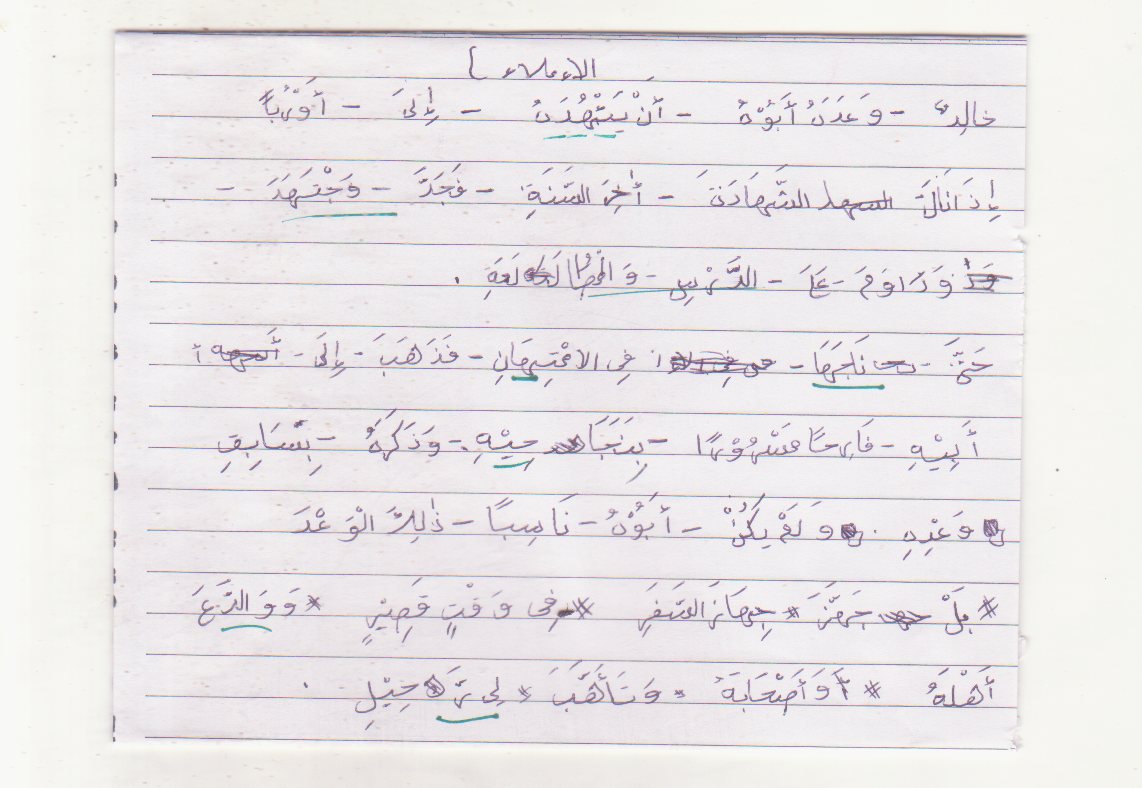 الاءملاء
خالِدٌ - وَعَدَهُ أَبُوْهُ - أَنْ يَبْهُدَهُ - إِلىَ - أَوْرُبَّا
إِذَا نَالَ الشَّهَادَةَ - أٰخِرَ السَّنَةِ - فَجَدَّ - وَجْتَهَدَ -
وَدَاوَمَ - عَلَ - الدَّرْسِ - وَالْمُطَالَعَةِ .
حَتَّىَ - نَاجَحَا - فِى الامْتِهَانِ - فَذَهَبَ - إِلَى -
أَبِيْهِ - فَارِحًا مَسْرُوْرًا - بِنَجَاحِيْهِ - وَذَكَرَهُ - بِسَابِقِ
وَعْدِهِ . وَلَمْ يَكُنْ - أَبُوْهُ - نَاسِيًا - ذٰلِكَ الْوَعْدَ
* بَلْ جَهَّزَ * جِهَازَ السَّفَرِ * فِى وَقْتٍ قَصِيْرٍ * وَوَالدَّعَ
أَهْلَهُ * وَأَصْحَابَهُ * وَتَأَهَّبَ * لِى رَّحِيْلِ .